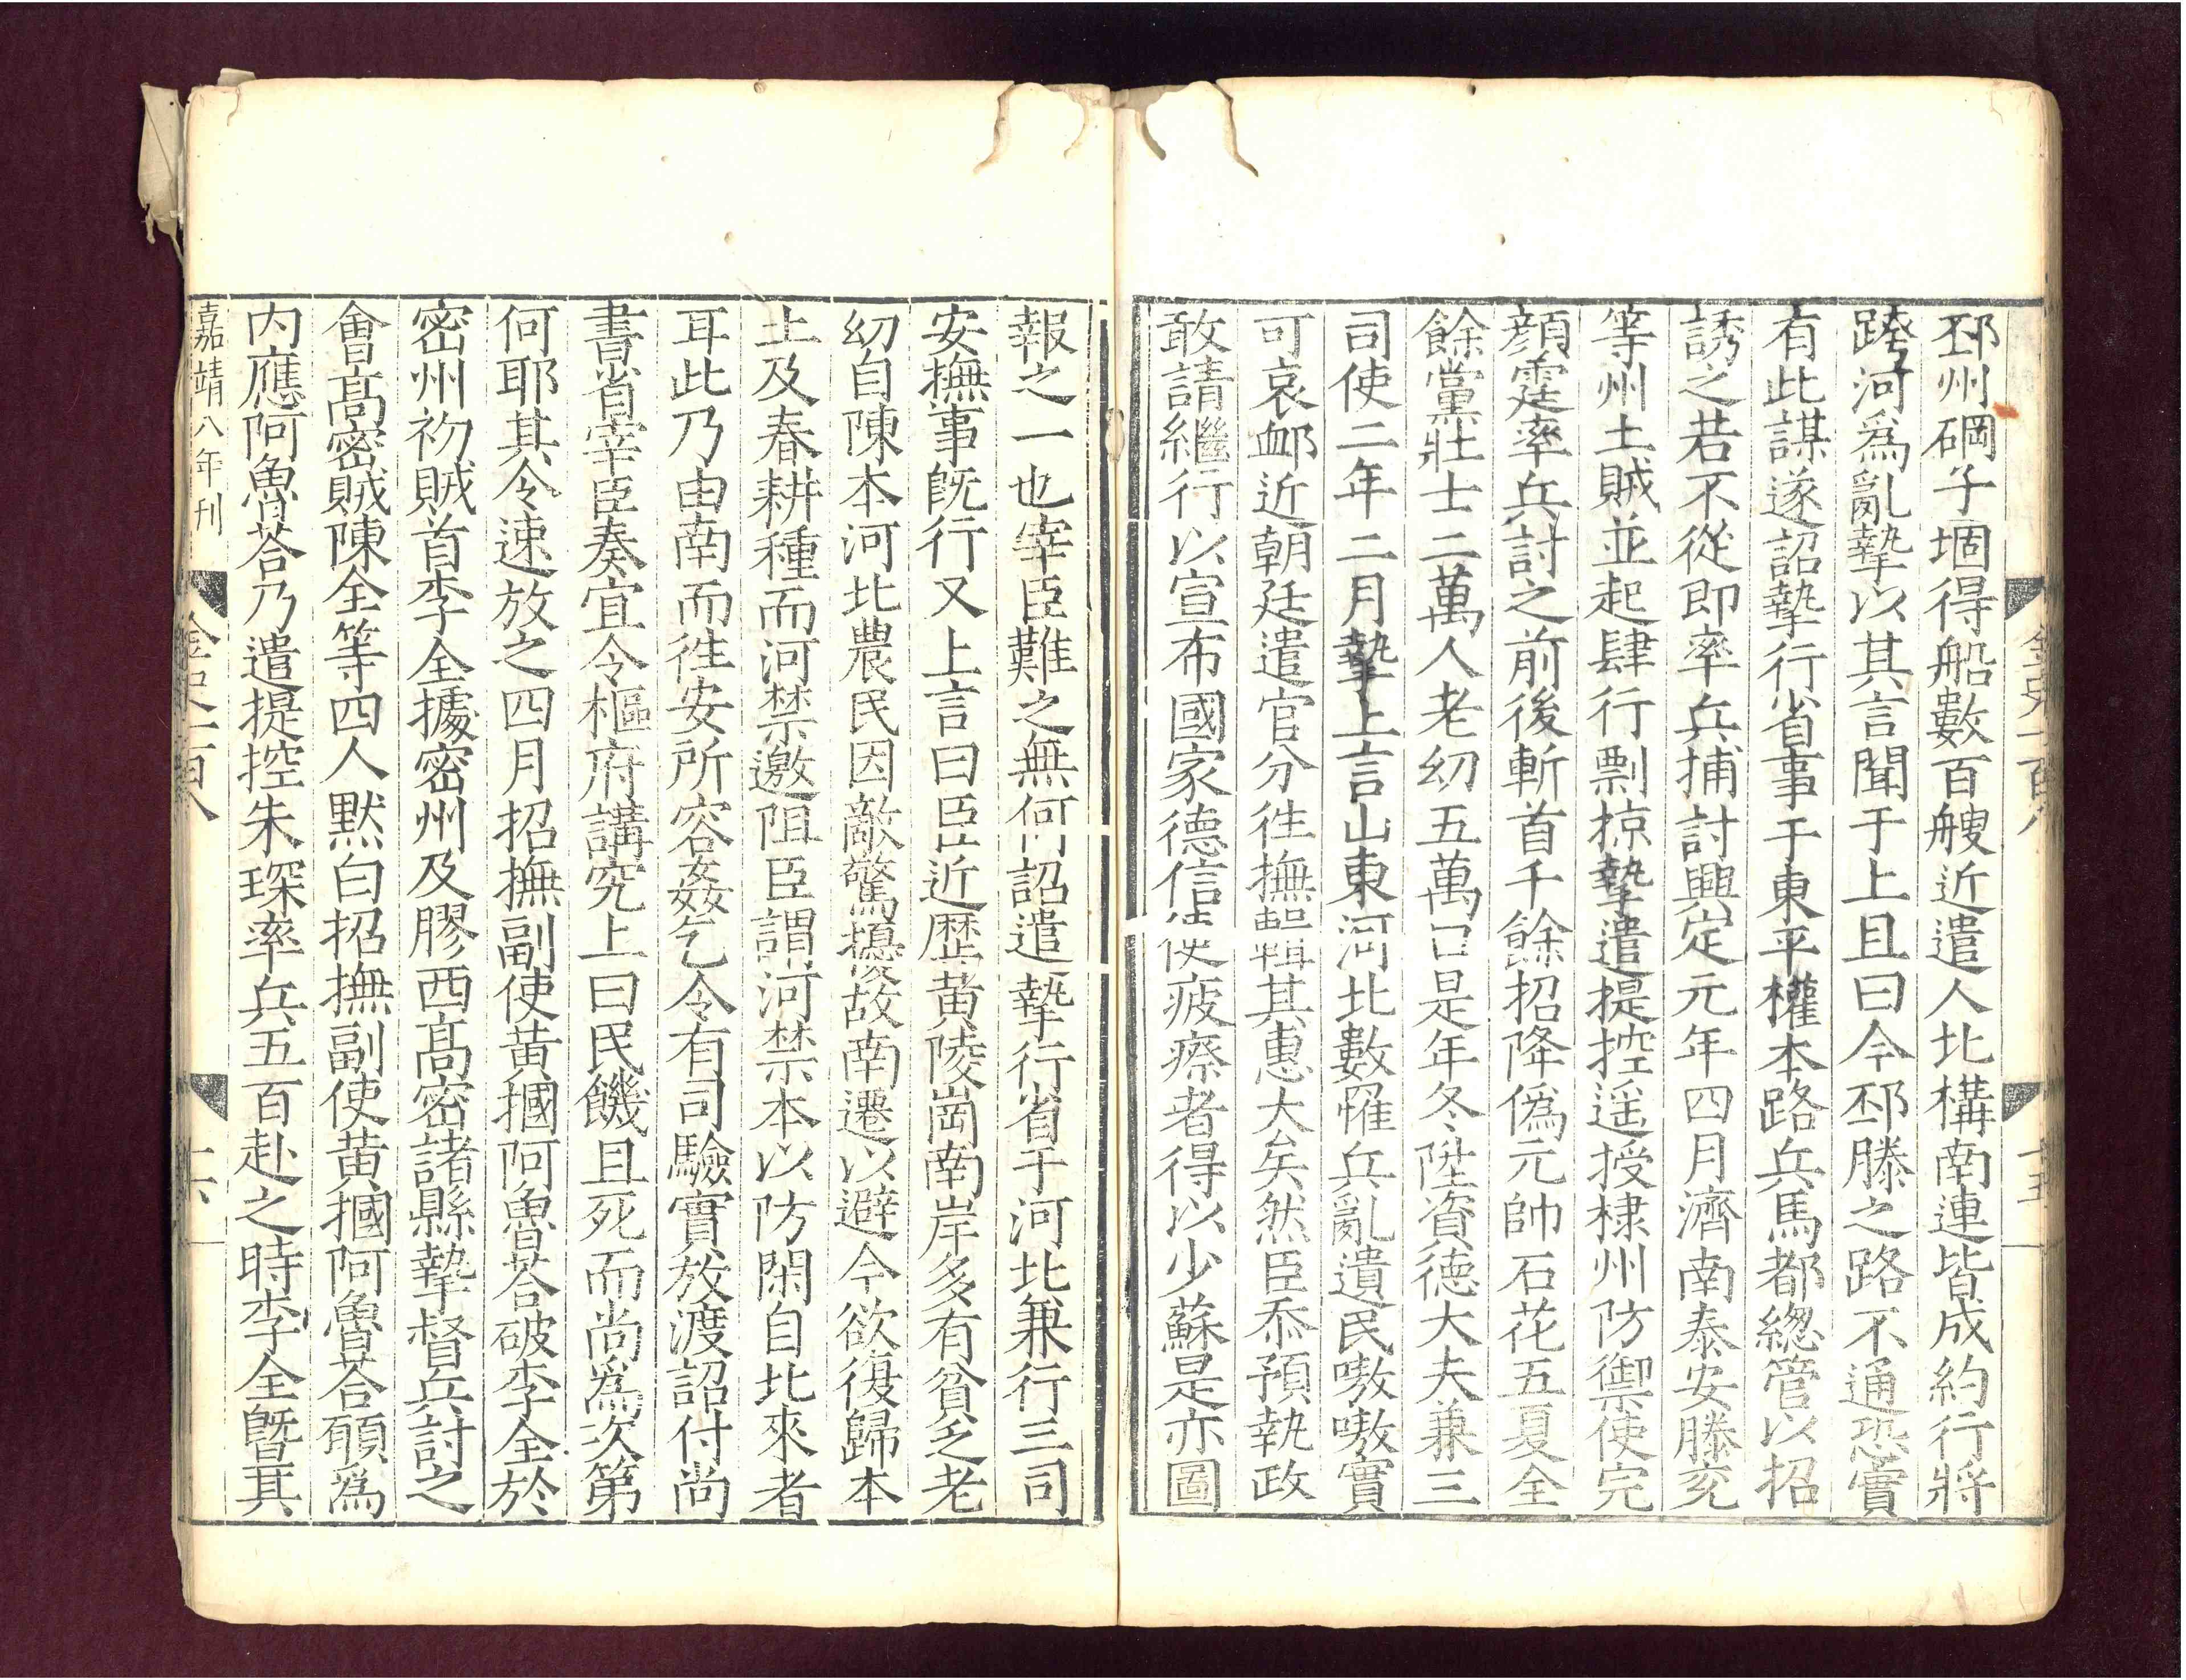 邳州碙子堌得船數百艘近遣人北構南連皆成約行將
跨河爲亂摯以其言聞于上且曰今邳滕之路不通恐實
有此謀遂詔摯行省事于東平權本路兵馬都總管以招
誘之若不從即率兵捕討興定元年四月濟南泰安滕兖
等州土賊並起肆行剽掠摯遣提控遥授棣州防禦使完
顏霆率兵討之前後斬首千餘招降僞元帥石花五夏全
餘黨壯士二萬人老幼五萬口是年冬陞資德大夫兼三
司使二年二月摯上言山東河北數罹兵亂遺民嗷嗷實
可哀卹近朝廷遣官分徃撫輯其惠大矣然臣忝預執政
敢請繼行以宣布國家德信使疲瘵者得以少蘇是亦圖
金史一百八
十五
報之一也宰臣難之無何詔遣摯行省于河北兼行三司
安撫事旣行又上言曰臣近歷黄陵崗南岸多有貧乏老
幼自陳本河北農民因敵驚擾故南遷以避今欲復歸本
土及春耕種而河禁邀阻臣謂河禁本以防閑自北來者
耳此乃由南而徃安所容姦乞令有司驗實放渡詔付尚
書省宰臣奏宜令樞府講究上曰民饑且死而尚爲次第
何耶其令速放之四月招撫副使黄摑阿魯荅破李全於
密州初賊首李全據密州及膠西高密諸縣摯督兵討之
會高密賊陳全等四人黙白招撫副使黄摑阿魯荅願爲
内應阿魯荅乃遣提控朱琛率兵五百赴之時李全曁其
嘉靖八年刊
金史一百八
十六